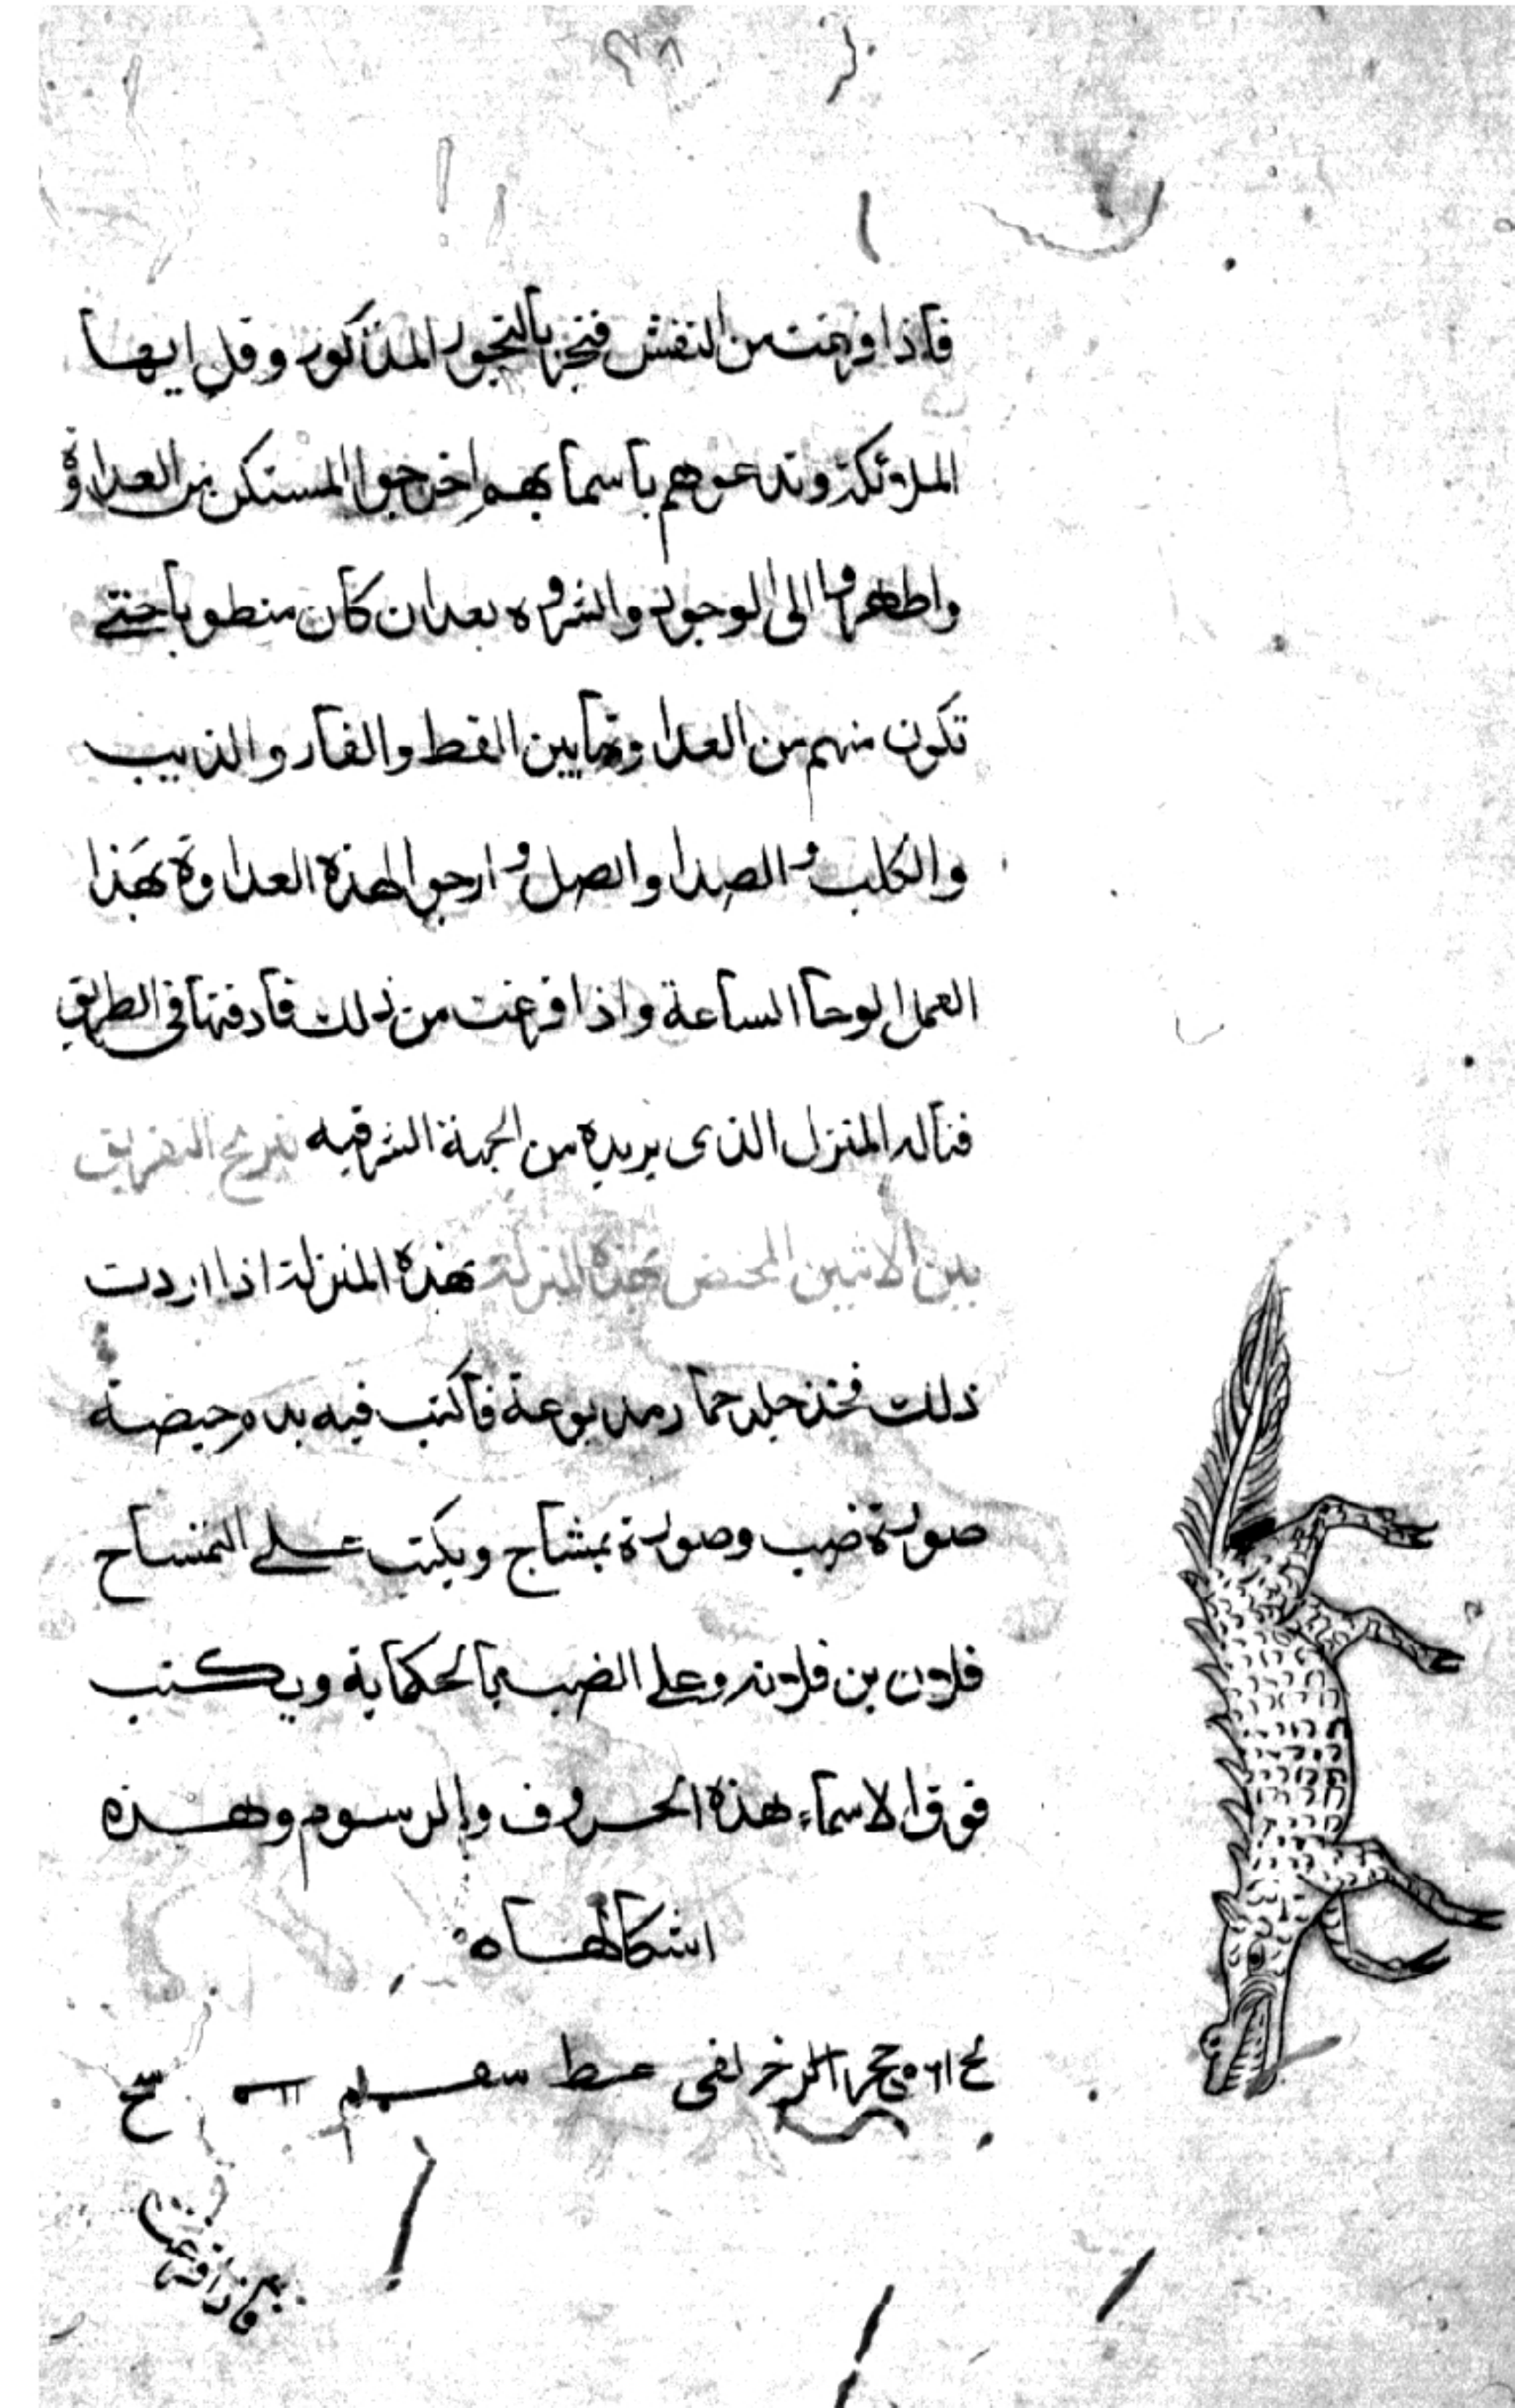 فاذا فرغت من النقش فتبخر بالبخور المذكور وقل ايها
الملائكة وتدعوهم باسمايهم اخرجوا المستكن من العداوة
واظهروا الى الوجود والشروه بعد ان كان منطويا حتى
تكون منهم من العداوة ما بين القط والفار والذيب
والكلب و الصدا والصل و ارجوا لهذه العداوة بهذا
العمل الوحا الساعة واذا فرغت من ذلك فادفنها في الطريق
المنزل الذى يريده من الجهة الشرقيه التفريق
بين الاثنين المختص بهذه المنزلة بهذه المنزلة اذا اردت
ذلك فخذ جلد حمار مدبوغة فاكتب فيه بدم حيضة
صورة ضب وصورة تمشاج ويكتب على التمساح
فلان بن فلانه وعلى الضب ويكتب
فوق الاسماء هذه الحروف والرسوم وهذه
اشكالها ه
سح
فاذا فرغت